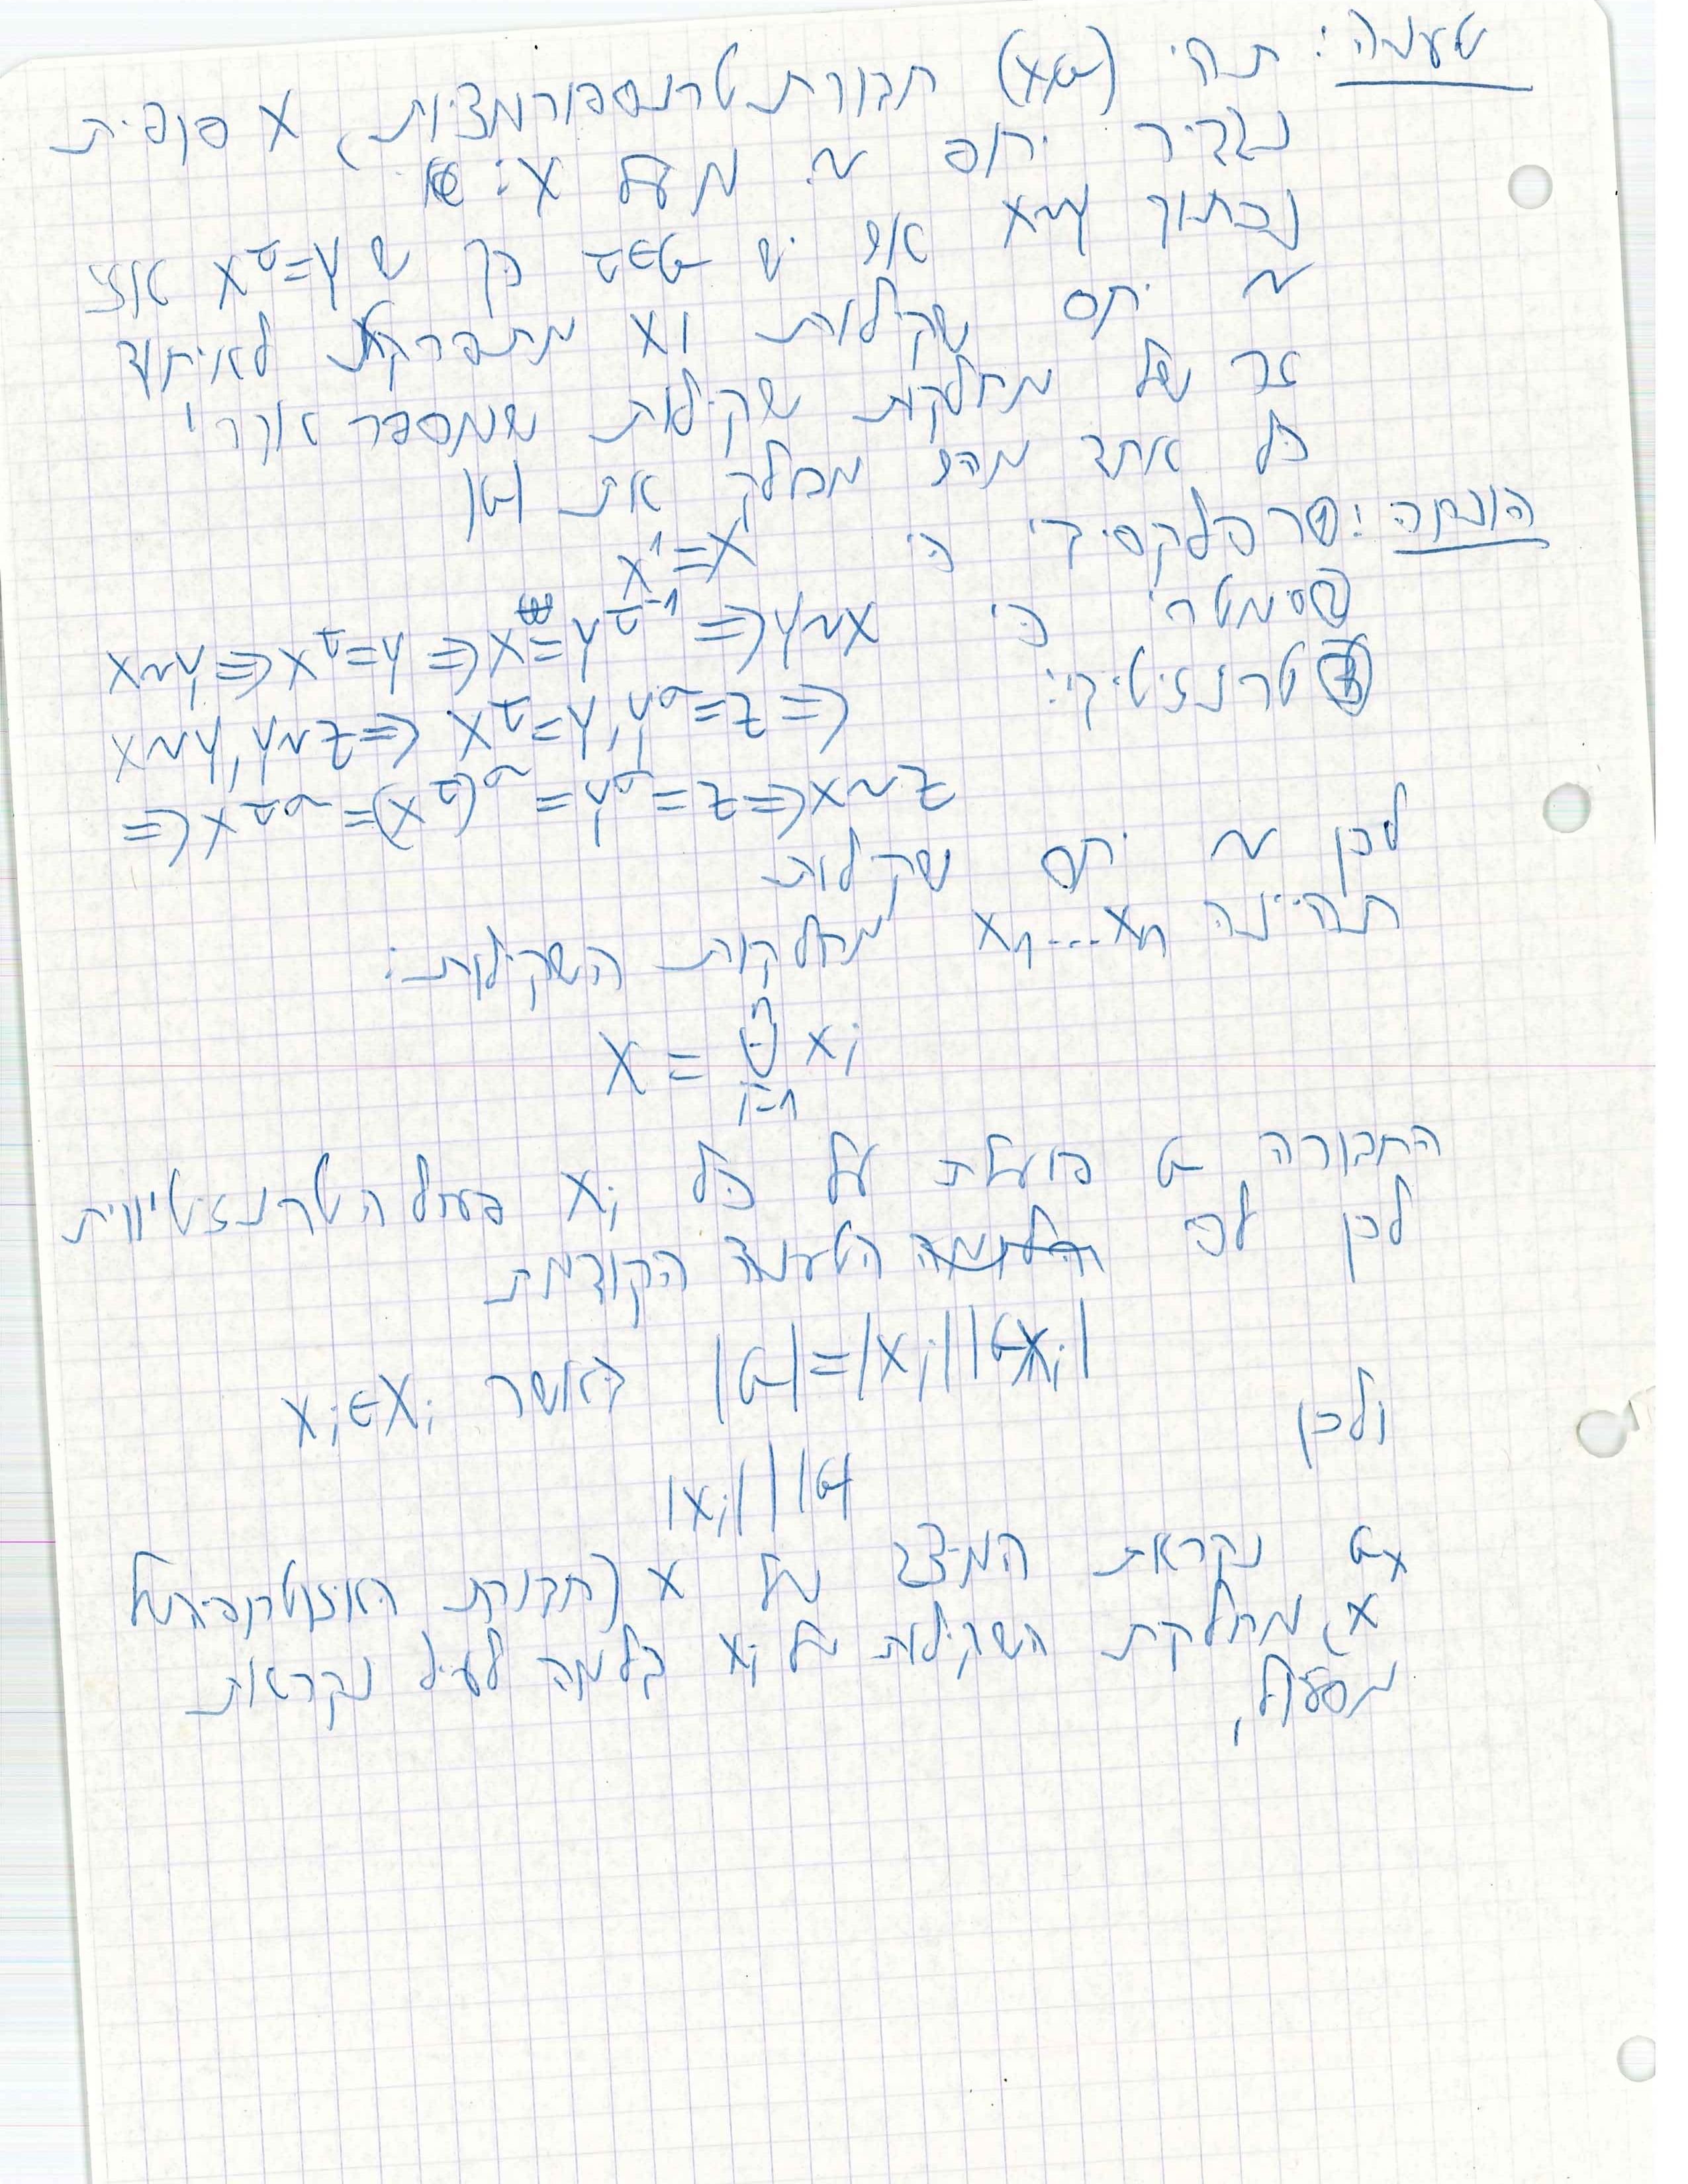 טענה: תהי (X,G) חבורת טרנספורמציות, X סופית
נגדיר יחס ~ מעל X:
נכתוב x~y אם יש τ∈G כך ש x^τ=y אז
~ יחס שקילות ו X מתפרקת לאיחוד
זר של מחלקות שקילות שמספר איברי
כל אחד מהם מחלק את |G|
הוכחה: ① רפלקסיבי כי x^1=x
② סימטרי כי x~y ⇒ x^τ=y ⇒ x=y^{τ^{-1}} ⇒ y~x
③ טרנזיטיבי: x~y, y~z ⇒ x^τ=y, y^σ=z ⇒
⇒ x^{τσ}=(x^τ)^σ=y^σ=z ⇒ x~z
לכן ~ יחס שקילות
תהיינה X_1...X_n מחלקות השקילות:
X = ⋃_{i=1}^n X_i
החבורה G פועלת על כל X_i הטרנזיטיווית
לכן לפי הטענה הקודמת
|G|=|X_i||G_{x_i}| כאשר x_i∈X_i
ולכן
|X_i| | |G|
G_x נקראת המיצב של x (חבורת האיזוטרופיה של
x), מחלקת השקילות של x_i לעיל נקראת
מסלול.